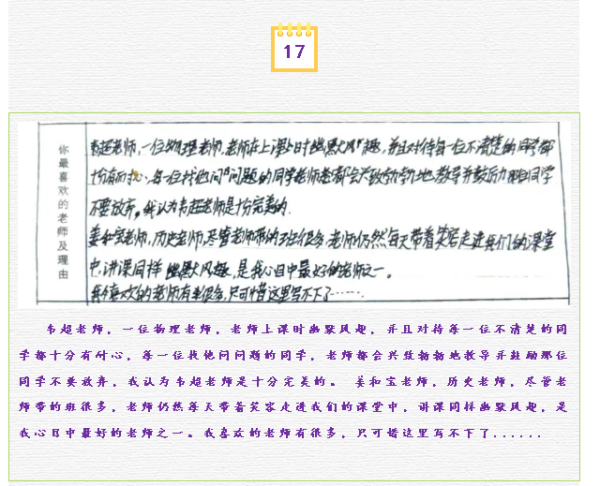 17
你最喜欢的老师及理由
韦超老师,一位物理老师,老师在上课时幽默风趣,并且对待每一位不清楚的同学都
十分有耐心,每一位找他问问题的同学老师都会兴致勃勃地教导并鼓励那位同学
不要放弃,我认为韦超老师是十分完美的.
姜和宝老师,历史老师,尽管老师带的班很多,老师仍然每天带着笑容走进我们的课堂
中,讲课同样幽默风趣,是我心目中最好的老师之一。
我喜欢的老师有很多,只可惜这里写不下了……
韦超老师,一位物理老师,老师上课时幽默风趣,并且对待每一位不清楚的同
学都十分有耐心,每一位找他问问题的同学,老师都会兴致勃勃地教导并鼓励那位
同学不要放弃,我认为韦超老师是十分完美的。 姜和宝老师,历史老师,尽管老
师带的班很多,老师仍然每天带着笑容走进我们的课堂中,讲课同样幽默风趣,是
我心目中最好的老师之一。我喜欢的老师有很多,只可惜这里写不下了......